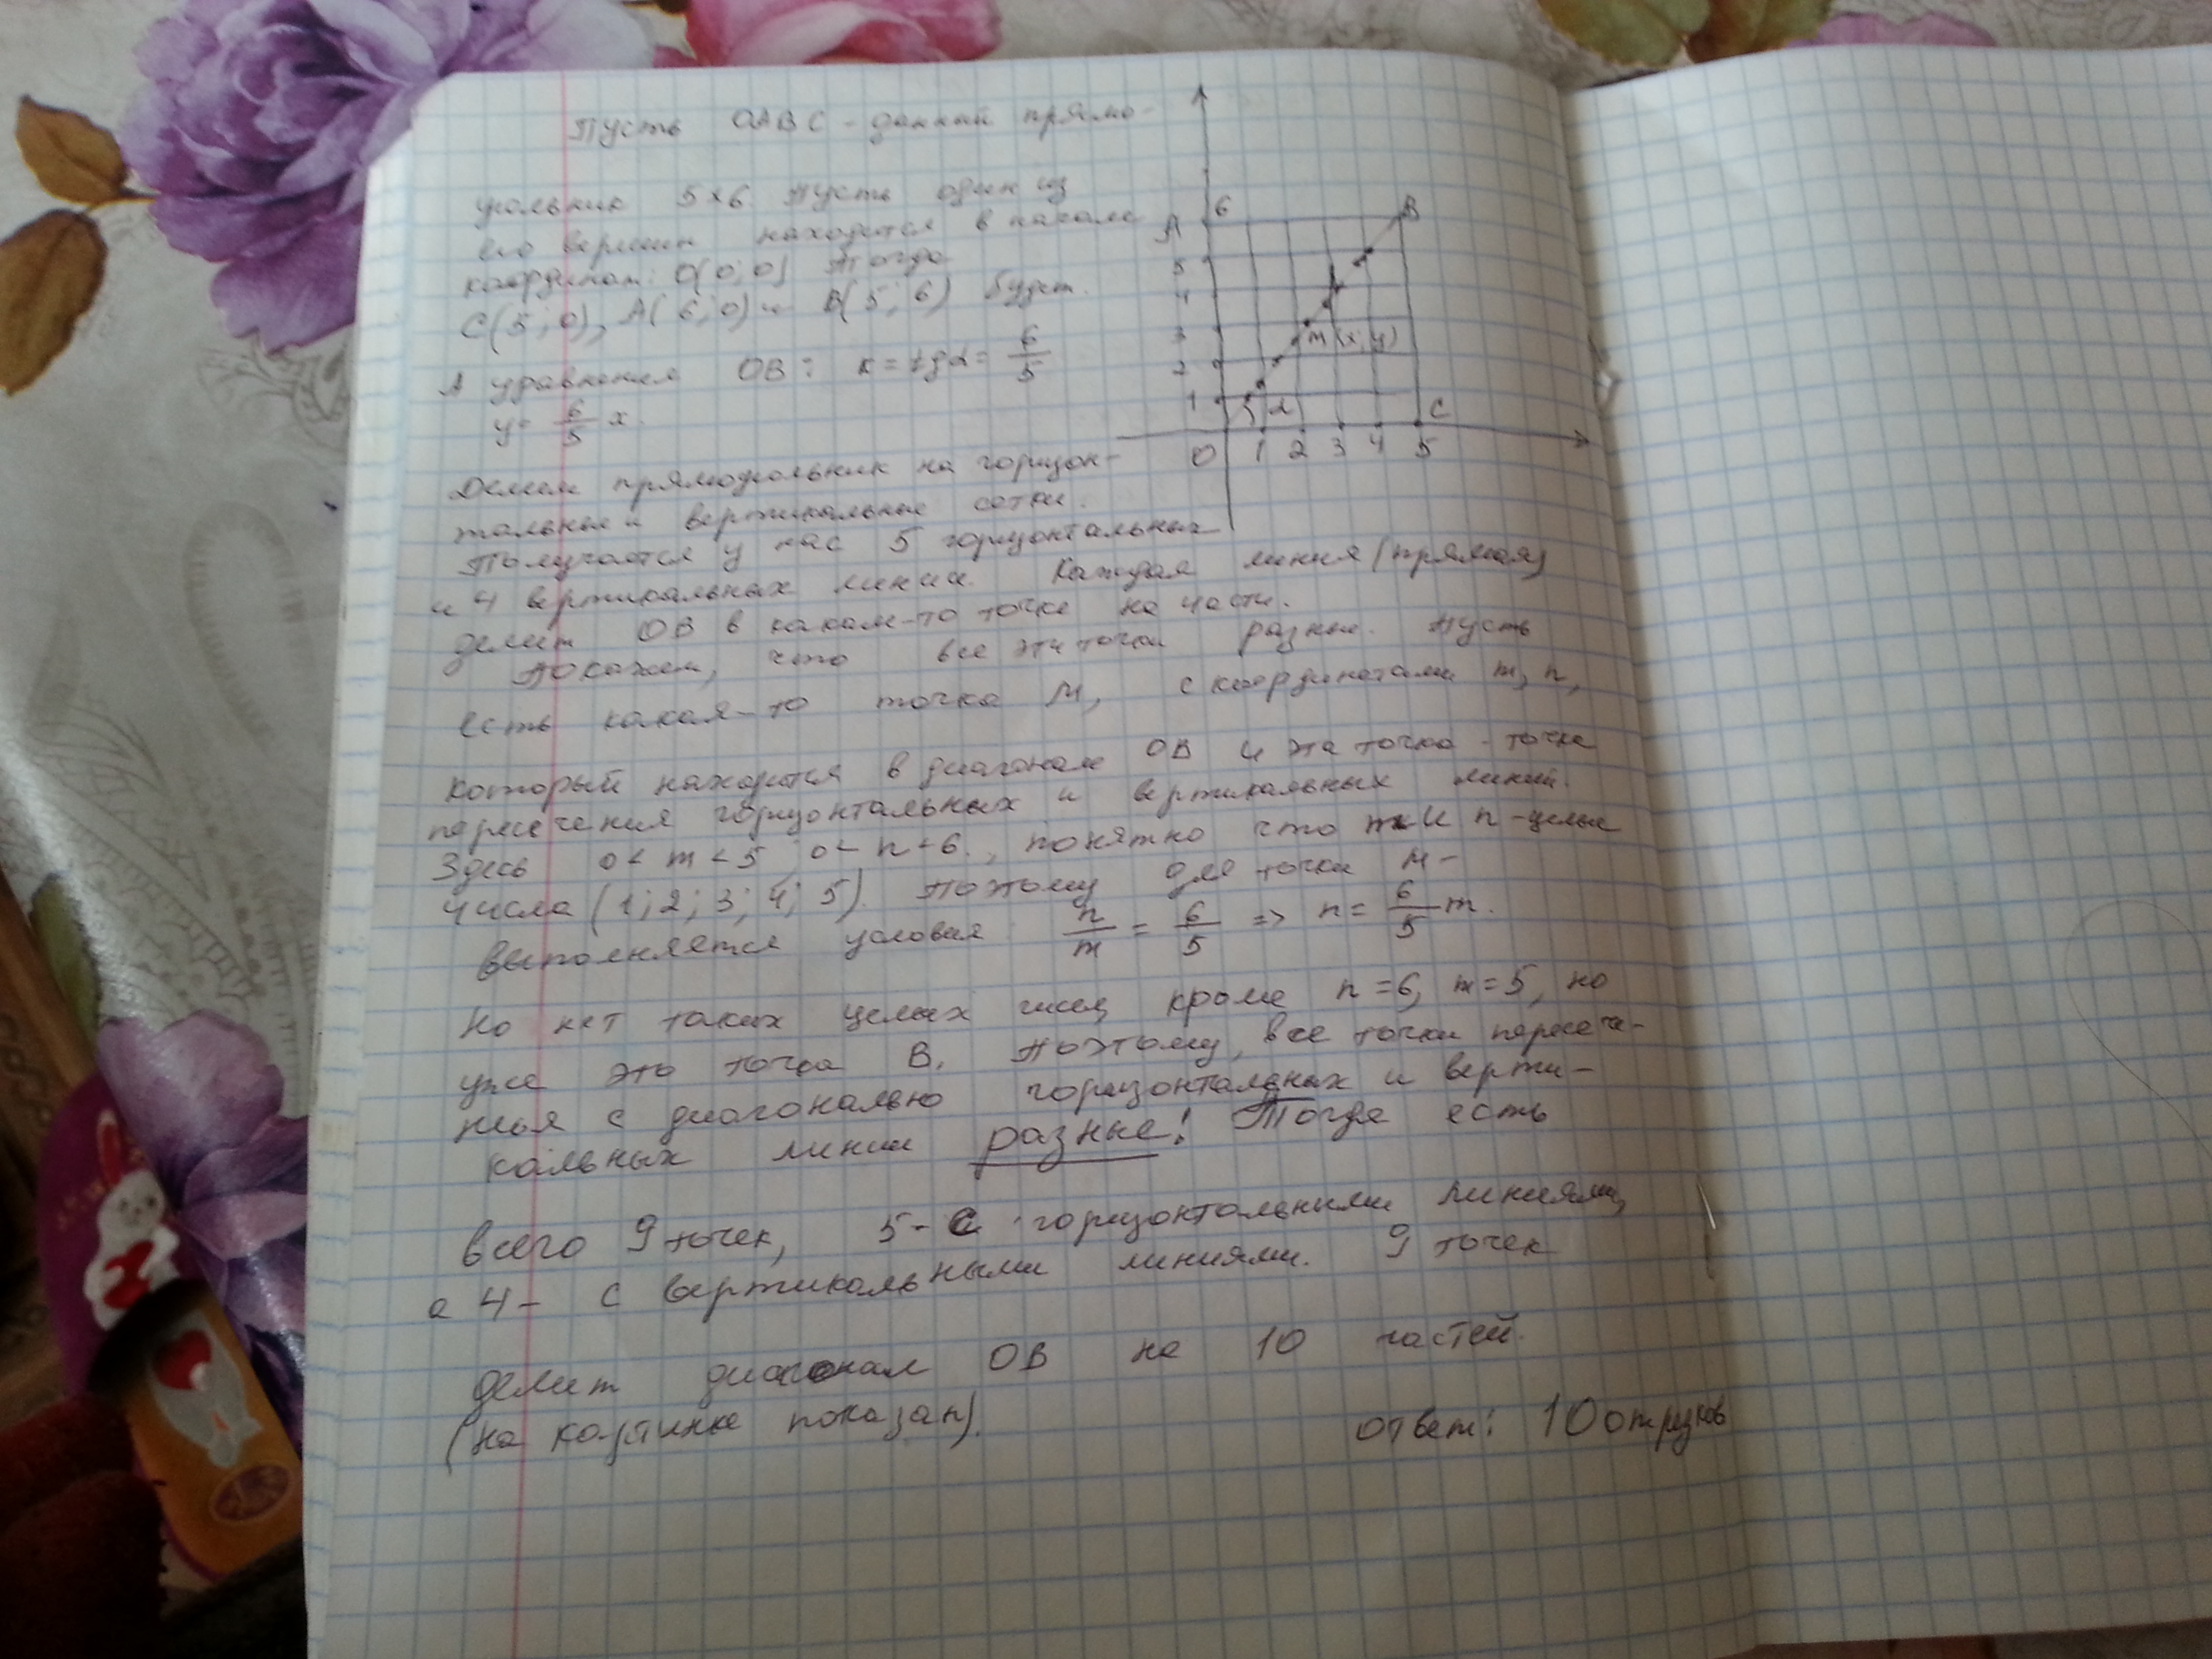 Пусть OABC - данный прямо-
угольник 5×6 Пусть один из
его вершин находится в начале
координат: O(0;0) Тогда
C(5;0), A(6;0) и B(5;6) будет.
А уравнения OB: k=tgα= 6/5
y= 6/5 x.
Делим прямоугольник на горизон-
тальные и вертикальные сетки.
Получается у нас 5 горизонтальных
и 4 вертикальных линии. Каждая линия (прямая)
делит OB в каком-то точке на части.
Покажем, что все эти точки разные. Пусть
есть какая-то точка M, с координатами m, n,
который находится в диагонале OB и эта точка - точка
пересечения горизонтальных и вертикальных линий.
Здесь 0 < m < 5, 0 < n < 6., понятно что m и n - целые
числа (1; 2; 3; 4; 5). Поэтому для точки M-
выполняется условия: n/m = 6/5 => n = 6/5 m.
Но нет таких целых чисел, кроме n=6, m=5, но
уже это точка B. Поэтому, все точки пересече-
ния с диагональю горизонтальных и верти-
кальных линии разные! Тогда есть
всего 9 точек, 5 - с горизонтальными линиями,
а 4 - с вертикальными линиями. 9 точек
делит диагонал OB на 10 частей.
(на картинке показан).
ответ: 10 отрезков
6
A
B
5
4
3
M(x;y)
2
1
α
C
O 1 2 3 4 5